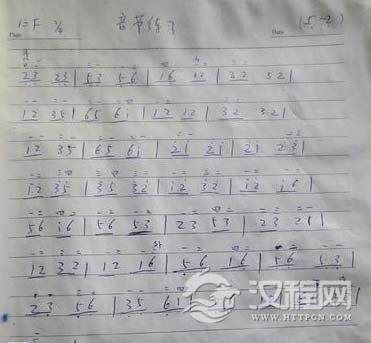 1=F 2/4 音阶练习 (5-2)
Date Date
23 23 | 53 56 | 16 12 | 32 32 |
12 35 | 65 6i | 12 12 | 32 32 |
12 35 | 65 6i | 2i 2i | 2i 23 |
i2 35 | 35 32 | i2 32 | i2 i6 |
56 i6 | 56 53 | 23 53 | 23 21 |
12 32 | 12 16 | 56 16 | 56 53 |
23 56 | 35 61 |
汉程网
WWW.HTTPCN.COM